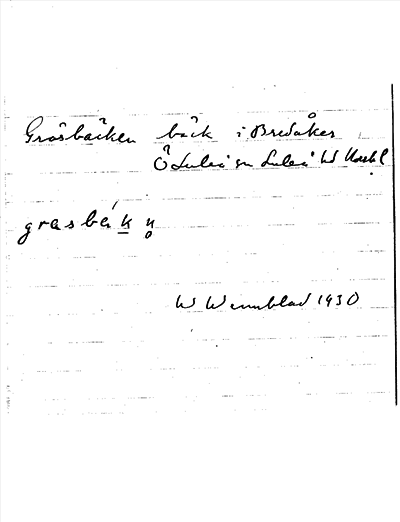 Gråsbäcken bäck i Bredåker
Ö Luleå sn Luleå
grasbäk n̥
W Wennblad 1930